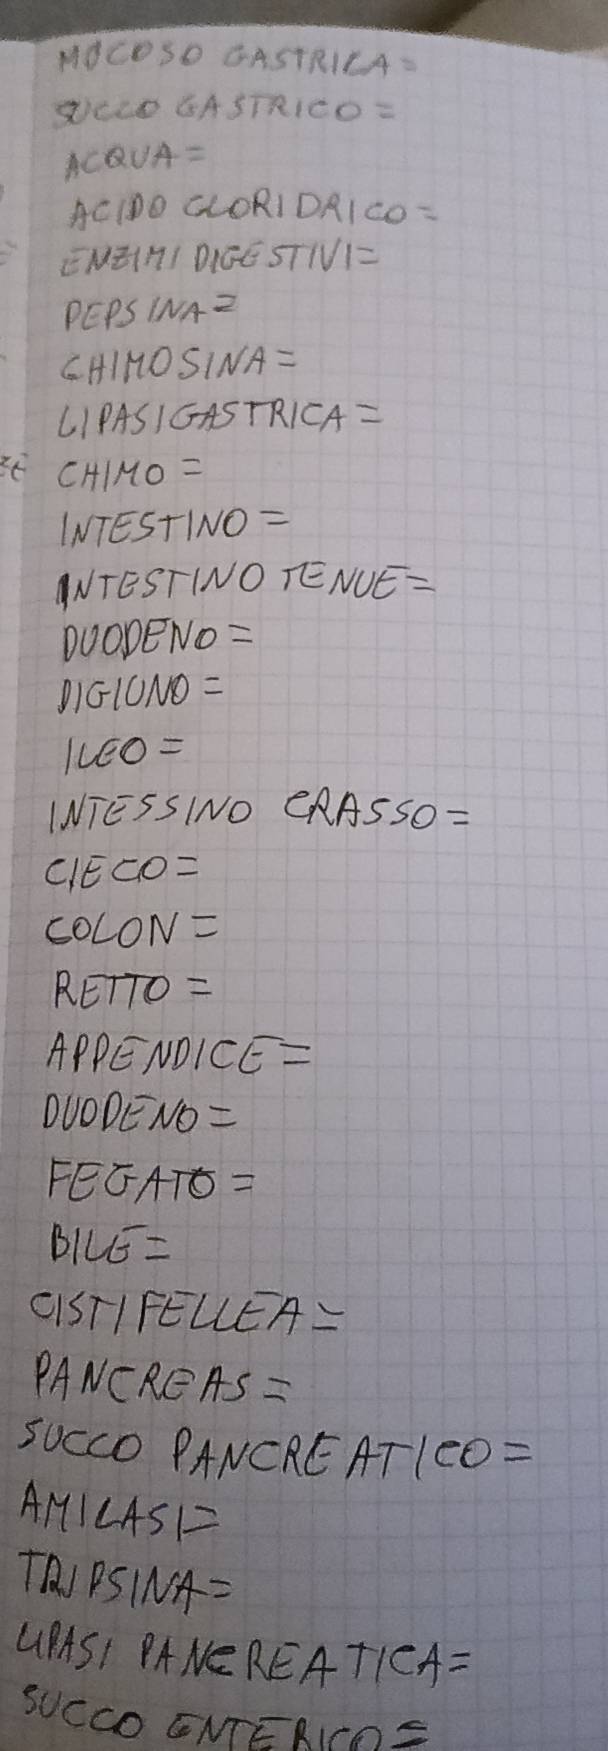 MUCOSO GASTRICA=
SUCCO GASTRICO=
ACQUA=
ACIDO CLORIDRICO=
ENZIMI DIGESTIVI=
PEPSINA=
CHIMOSINA=
LIPASI GASTRICA=
CHIMO=
INTESTINO=
INTESTINO TENUE=
DUODENO=
DIGIUNO=
ILEO=
INTESSINO CRASSO=
CIECO=
COLON=
RETTO=
APPENDICE=
DUODENO=
FEGATO=
BILE=
CISTIFELLEA=
PANCREAS=
SUCCO PANCREATICO=
AMILASI=
TRIPSINA=
LIPASI PANCREATICA=
SUCCO ENTERICO=